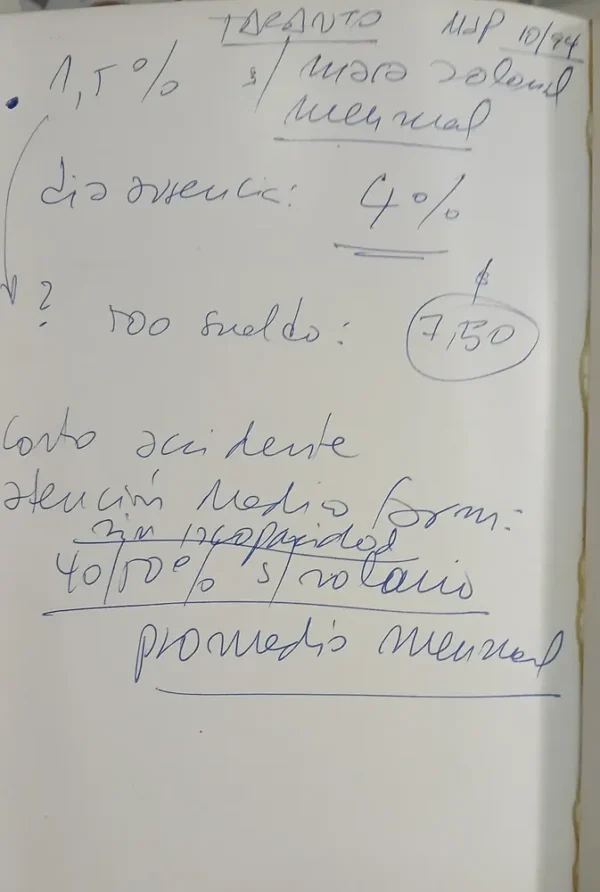 TARANTO MDP 10/94
• 1,5% s/ masa salarial
mensual
dia ausencia: 4%
? 500 sueldo: $ 7,50
Costo accidente
atención Medico Farm:
sin incapacidad
40/50% s/ salario
promedio mensual